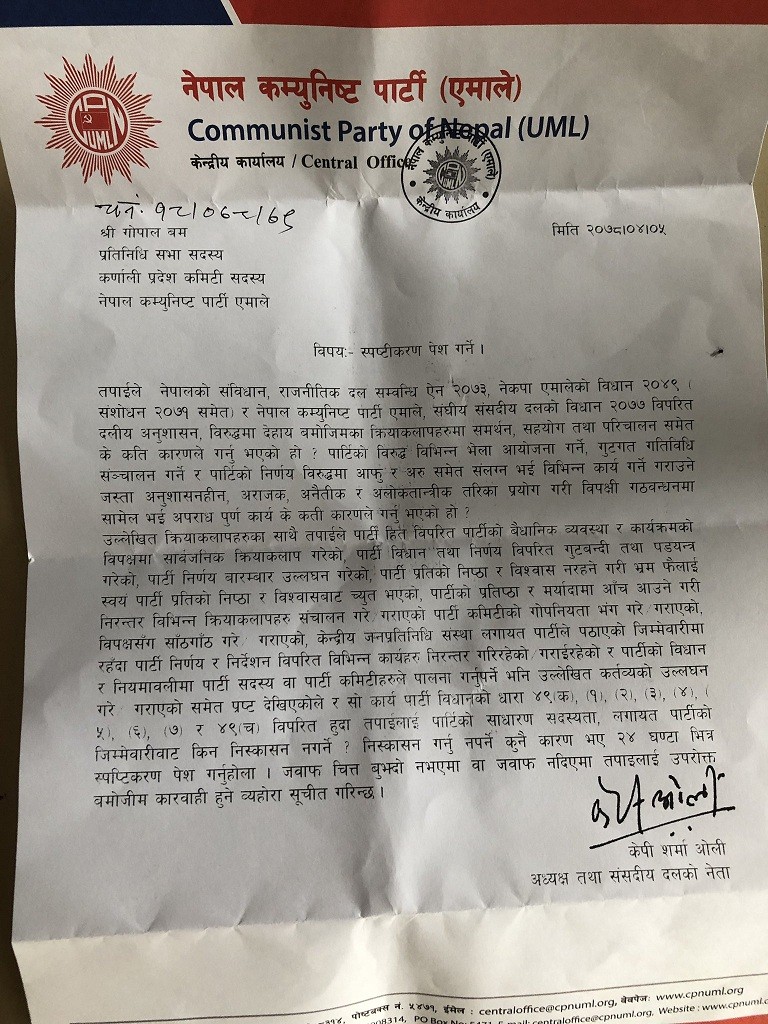 नेपाल कम्युनिष्ट पार्टी (एमाले)
Communist Party of Nepal (UML)
केन्द्रीय कार्यालय / Central Office
नेपाल कम्युनिष्ट पार्टी (एमाले)
केन्द्रीय कार्यालय
CPN
UML
मिति २०७८।०४।०५
श्री गोपाल बम
प्रतिनिधि सभा सदस्य
कर्णाली प्रदेश कमिटी सदस्य
नेपाल कम्युनिष्ट पार्टी एमाले
विषयः- स्पष्टीकरण पेश गर्ने ।
तपाईले नेपालको संविधान, राजनीतिक दल सम्वन्धि ऐन २०७३, नेकपा एमालेको विधान २०४९ (
संशोधन २०७१ समेत) र नेपाल कम्युनिष्ट पार्टी एमाले, संघीय संसदीय दलको विधान २०७७ विपरित
दलीय अनुशासन, विरुद्धमा देहाय बमोजिमका क्रियाकलापहरुमा समर्थन, सहयोग तथा परिचालन समेत
के कति कारणले गर्नु भएको हो ? पार्टिको विरुद्ध विभिन्न भेला आयोजना गर्ने, गुटगत गतिविधि
सञ्चालन गर्ने र पार्टिको निर्णय विरुद्धमा आफु र अरु समेत संलग्न भई विभिन्न कार्य गर्ने गराउने
जस्ता अनुशासनहीन, अराजक, अनैतीक र अलोकतान्त्रीक तरिका प्रयोग गरी विपक्षी गठवन्धनमा
सामेल भई अपराध पुर्ण कार्य के कती कारणले गर्नु भएको हो ?
उल्लेखित क्रियाकलापहरुका साथै तपाईले पार्टी हित विपरित पार्टीको बैधानिक व्यवस्था र कार्यक्रमको
विपक्षमा सार्बजनिक क्रियाकलाप गरेको, पार्टी विधान तथा निर्णय विपरित गुटबन्दी तथा षडयन्त्र
गरेको, पार्टी निर्णय बारम्बार उल्लघन गरेको, पार्टी प्रतिको निष्ठा र विश्वास नरहने गरी भ्रम फैलाई
स्वयं पार्टी प्रतिको निष्ठा र विश्वासबाट च्युत भएको, पार्टीको प्रतिष्ठा र मर्यादामा आँच आउने गरी
निरन्तर विभिन्न क्रियाकलापहरु संचालन गरे/गराएको पार्टी कमिटीको गोपनियता भंग गरे/गराएको,
विपक्षसँग साँठगाँठ गरे/ गराएको, केन्द्रीय जनप्रतिनिधि संस्था लगायत पार्टीले पठाएको जिम्मेवारीमा
रहँदा पार्टी निर्णय र निर्देशन विपरित विभिन्न कार्यहरु निरन्तर गरिरहेको/गराईरहेको र पार्टीको विधान
र नियमावलीमा पार्टी सदस्य वा पार्टी कमिटीहरुले पालना गर्नुपर्ने भनि उल्लेखित कर्तव्यको उल्लघन
गरे/ गराएको समेत प्रष्ट देखिएकोले र सो कार्य पार्टी विधानको धारा ४९(क), (१), (२), (३), (४), (
५), (६), (७) र ४९(च) विपरित हुदा तपाईलाई पार्टिको साधारण सदस्यता, लगायत पार्टीको
जिम्मेवारीवाट किन निस्कासन नगर्ने ? निस्कासन गर्नु नपर्ने कुनै कारण भए २४ घण्टा भित्र
स्पष्टिकरण पेश गर्नुहोला । जवाफ चित्त बुभ्दो नभएमा वा जवाफ नदिएमा तपाइलाई उपरोक्त
बमोजीम कारवाही हुने व्यहोरा सूचीत गरिन्छ।
केपी शर्मा ओली
अध्यक्ष तथा संसदीय दलको नेता
पोष्टबक्स नं. ५४७१, ईमेल : centraloffice@cpnuml.org, वेवपेजः www.cpnuml.org
PO Box No: 5471, E-mail: centraloffice@cpnuml.org, Website : www.cpnuml.